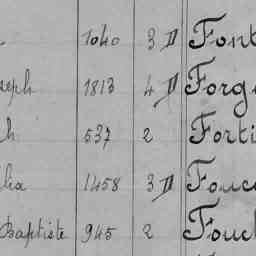 1040 3 D Font
seph 1813 4 D Forg
h 537 2 Forti
lia 1458 3 D Fouc
Baptiste 945 2 Fouc